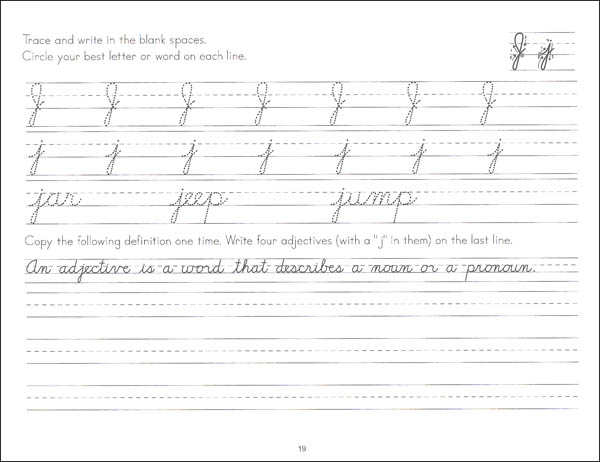 Trace and write in the blank spaces.
Circle your best letter or word on each line.
J j
J J J J J J J
j j j j j j j
jar jeep jump
Copy the following definition one time. Write four adjectives (with a "j" in them) on the last line.
An adjective is a word that describes a noun or a pronoun.
19